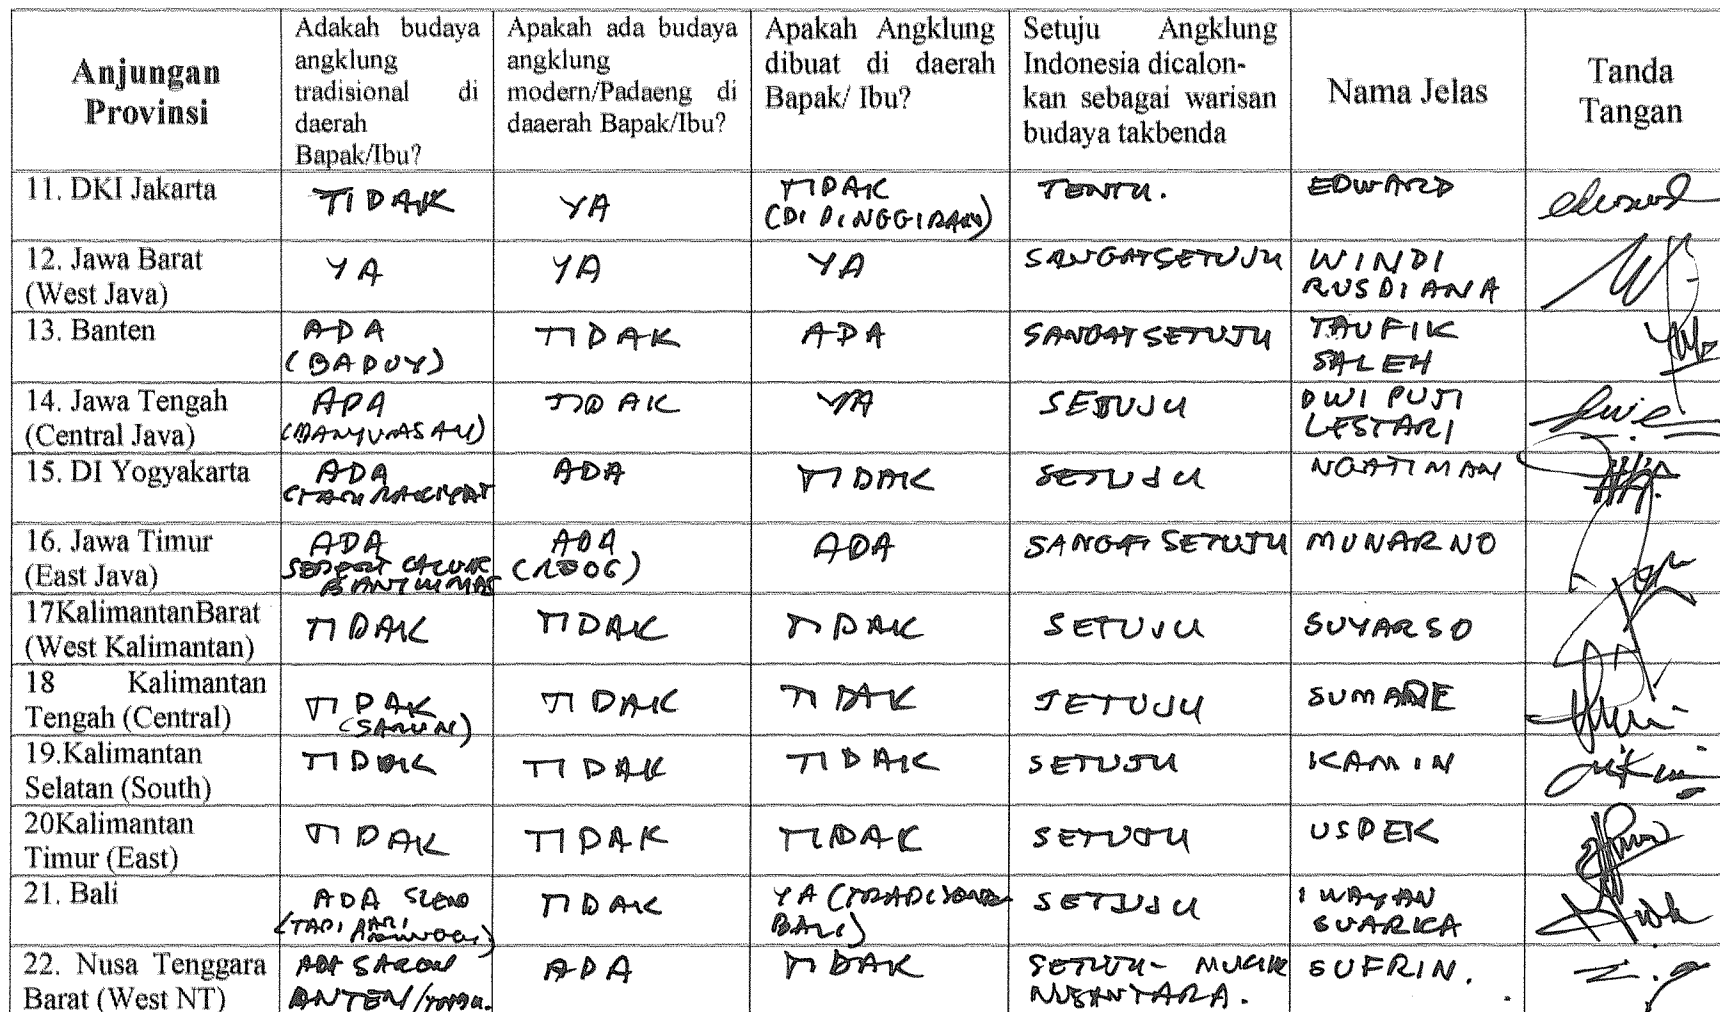 Anjungan Provinsi
Adakah budaya angklung tradisional di daerah Bapak/Ibu?
Apakah ada budaya angklung modern/Padaeng di daaerah Bapak/Ibu?
Apakah Angklung dibuat di daerah Bapak/ Ibu?
Setuju Angklung Indonesia dicalon-kan sebagai warisan budaya takbenda
Nama Jelas
Tanda Tangan
11. DKI Jakarta
TIDAK
YA
TIDAK
TENTU.
EDWARD
12. Jawa Barat
(West Java)
YA
YA
YA
SANGAT SETUJU
WINDI
RUSDIANA
13. Banten
ADA
(BADUY)
TIDAK
ADA
SANGAT SETUJU
TAUFIK
SALEH
14. Jawa Tengah
(Central Java)
ADA
(BANYUMASAN)
TIDAK
YA
SETUJU
DWI PUJI
LESTARI
15. DI Yogyakarta
ADA
ADA
TIDAK
SETUJU
NGATIMAN
16. Jawa Timur
(East Java)
ADA
ADA
(REOG)
ADA
SANGAT SETUJU
MUNARNO
17KalimantanBarat
(West Kalimantan)
TIDAK
TIDAK
TIDAK
SETUJU
SUYARSO
18 Kalimantan
Tengah (Central)
TIDAK
TIDAK
TIDAK
SETUJU
19.Kalimantan
Selatan (South)
TIDAK
TIDAK
TIDAK
SETUJU
KAMIN
20Kalimantan
Timur (East)
TIDAK
TIDAK
TIDAK
SETUJU
USDEK
21. Bali
ADA
TIDAK
YA (TRADISIONAL
BALI)
SETUJU
I WAYAN
SUARKA
22. Nusa Tenggara
Barat (West NT)
ADA
ADA
TIDAK
SETUJU - MUSIK
NUSANTARA.
SUFRIN.